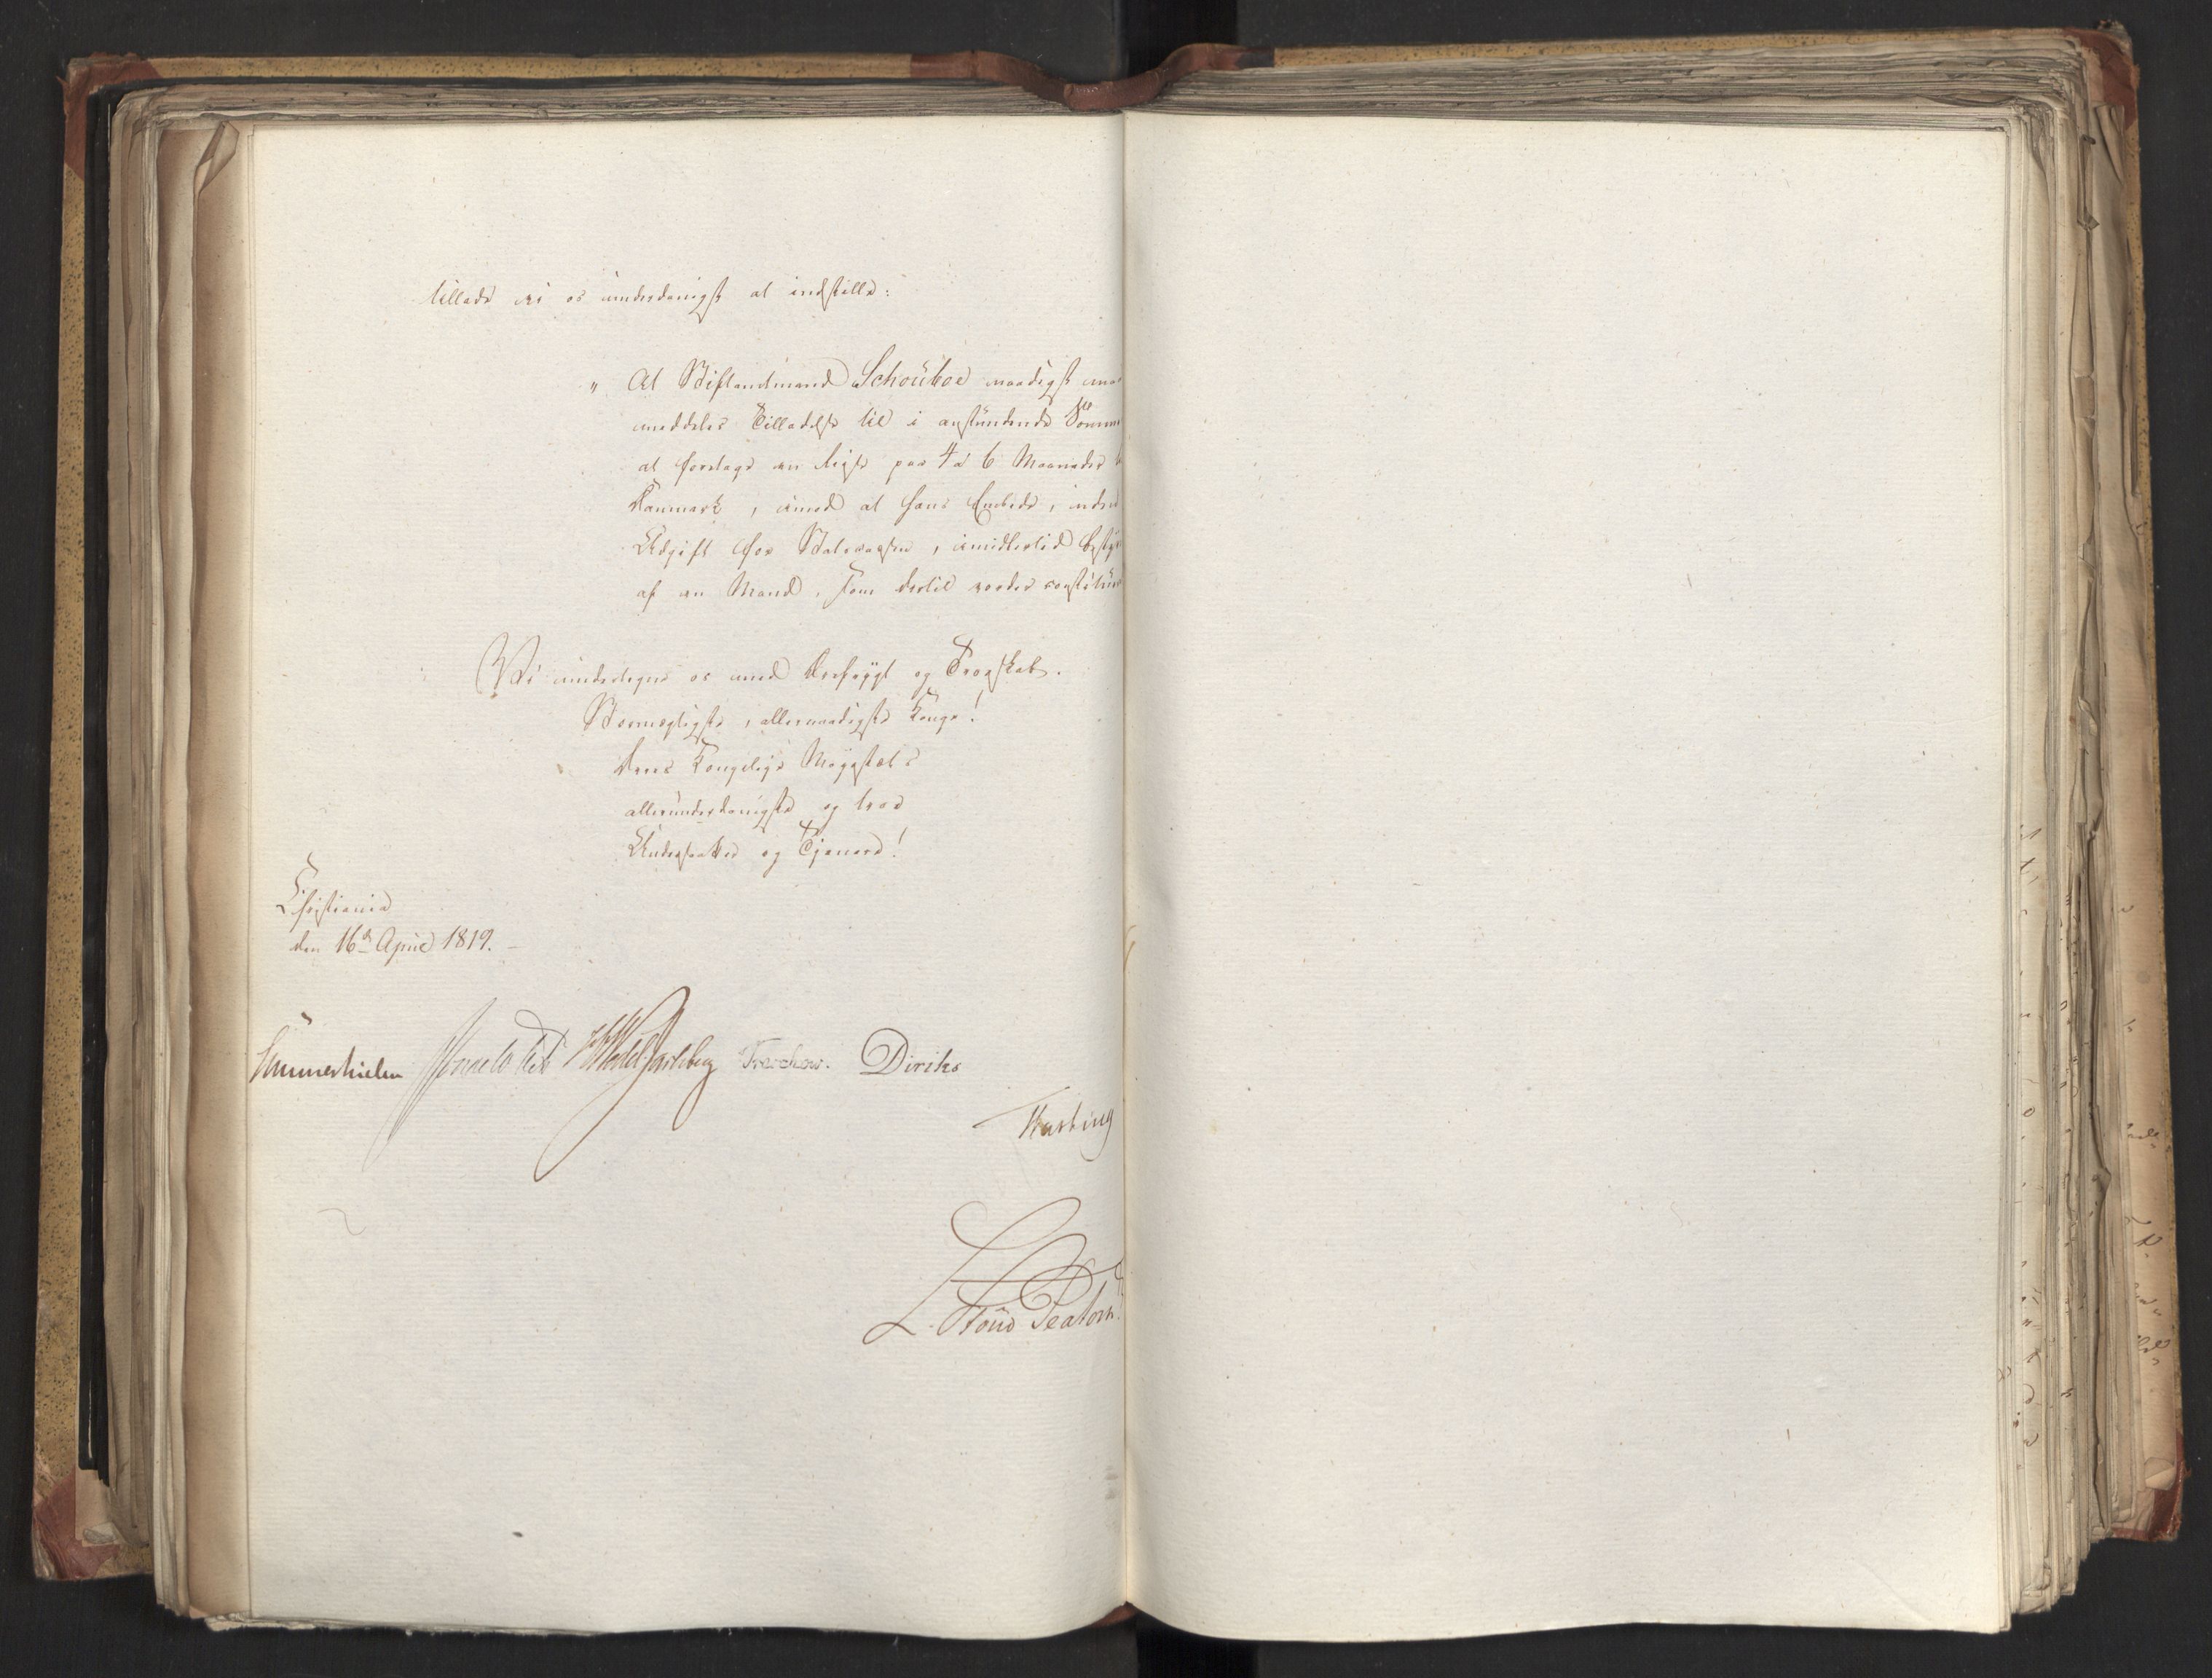 tillade vi os underdanigst at indstille:
„ At Stiftamtmand Schouboe naadigst maa
meddeles Tilladelse til i anstundende Somme
at foretage en Reise paa 4 a 6 Maaneder
Danmark, imod at hans Embede, uden
Udgift for Statscassen, imidlertid besty
af en Mand, som dertil vorder constitue
Vi undertegne os med Ærefrygt og Troeskab.
Stormægtigste, allernaadigste Konge!
Deres Kongelige Majestæts
allerunderdanigste og troe
Undersaatter og Tjenere!
Christiania
den 16de April 1819.
Sommerhielm Wedel Jarlsberg Treschow. Diriks
Fasting
L. Stoud Platou